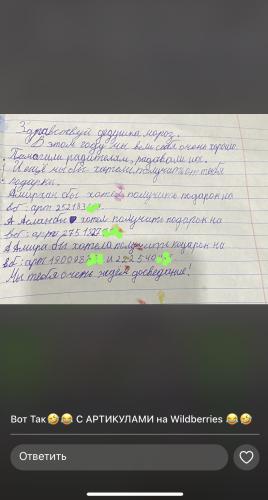 Здравствуй дедушка мороз.
В этом году мы вели себя очень хорошо.
Помогали родителям, радовали их.
И ещё мы бы хотели получить от тебя
подарки.
Амирхан бы хотел получить подарок на
вб: арт 252183
А Асланбы хотел получить подарок на
вб: арт 2751527
А Амира бы хотела получить подарок на
вб: арт 1900087 и 222540
Мы тебя очень ждём досведание!
Вот Так🤣😂 С АРТИКУЛАМИ на Wildberries 😂🤣
Ответить